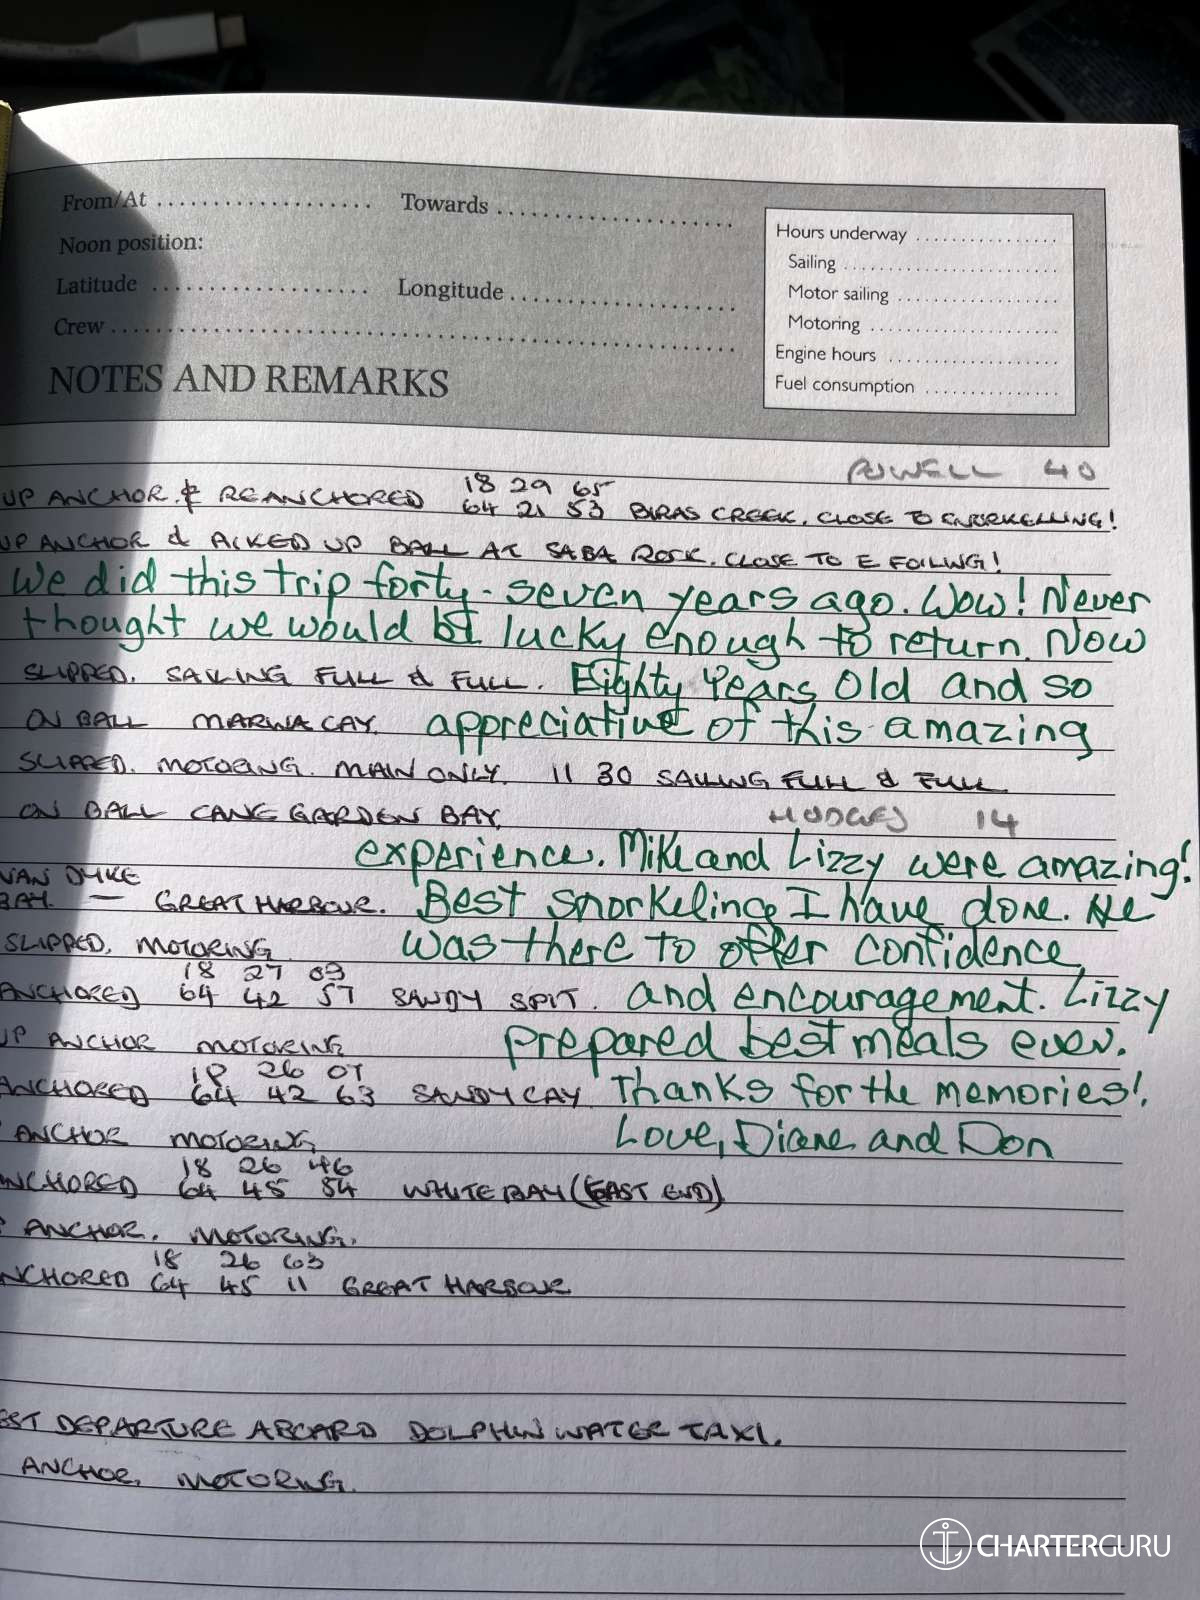 From/At
Towards
Noon position:
Latitude
Longitude
Crew
Hours underway
Sailing
Motor sailing
Motoring
Engine hours
Fuel consumption
NOTES AND REMARKS
POWELL 40
18 29 65
UP ANCHOR & REANCHORED 64 21 53 BIRAS CREEK, CLOSE TO SNORKELLING!
UP ANCHOR & PICKED UP BALL AT SABA ROCK. CLOSE TO E FOILING!
We did this trip forty-seven years ago. Wow! Never
thought we would be lucky enough to return. Now
SLIPPED. SAILING FULL & FULL. Eighty Years Old and so
ON BALL MARINA CAY. appreciative of this amazing
SLIPPED. MOTORING. MAIN ONLY. 11 30 SAILING FULL & FULL
ON BALL CANE GARDEN BAY. HODGES 14
experience. Mike and Lizzy were amazing!
VAN DYKE
BAY. — GREAT HARBOUR. Best snorkeling I have done. He
SLIPPED, MOTORING was there to offer confidence
18 27 03
ANCHORED 64 42 57 SANDY SPIT. and encouragement. Lizzy
UP ANCHOR MOTORING prepared best meals ever.
18 26 07
ANCHORED 64 42 63 SANDY CAY Thanks for the memories!
ANCHOR MOTORING, Love, Diane and Don
18 26 46
NCHORED 64 45 54 WHITE BAY (EAST END)
ANCHOR. MOTORING.
18 26 63
NCHORED 64 45 11 GREAT HARBOUR
EST DEPARTURE ABOARD DOLPHIN WATER TAXI.
ANCHOR. MOTORING.
CHARTERGURU